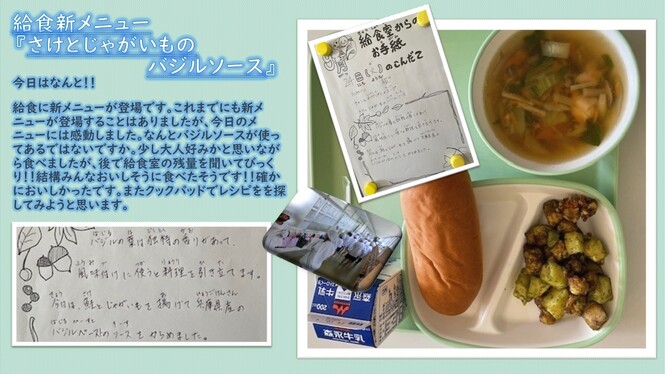 給食新メニュー
『さけとじゃがいもの
バジルソース』
今日はなんと！！
給食に新メニューが登場です。これまでにも新メ
ニューが登場することはありましたが、今日のメ
ニューには感動しました。なんとバジルソースが使っ
てあるではないですか。少し大人好みかと思いなが
ら食べましたが、後で給食室の残量を聞いてびっく
り！！結構みんなおいしそうに食べたそうです！！確か
においしかったです。またクックパッドでレシピをを探
してみようと思います。
バジルの葉は独特の香りがあって、
風味付けに使うと料理を引き立てます。
今日は、鮭とじゃがいもを揚げて兵庫県産の
バジルペーストのソースをからめました。
給食室からの
お手紙
9月
日(火)のこんだて
森永
牛乳
200
森永牛乳